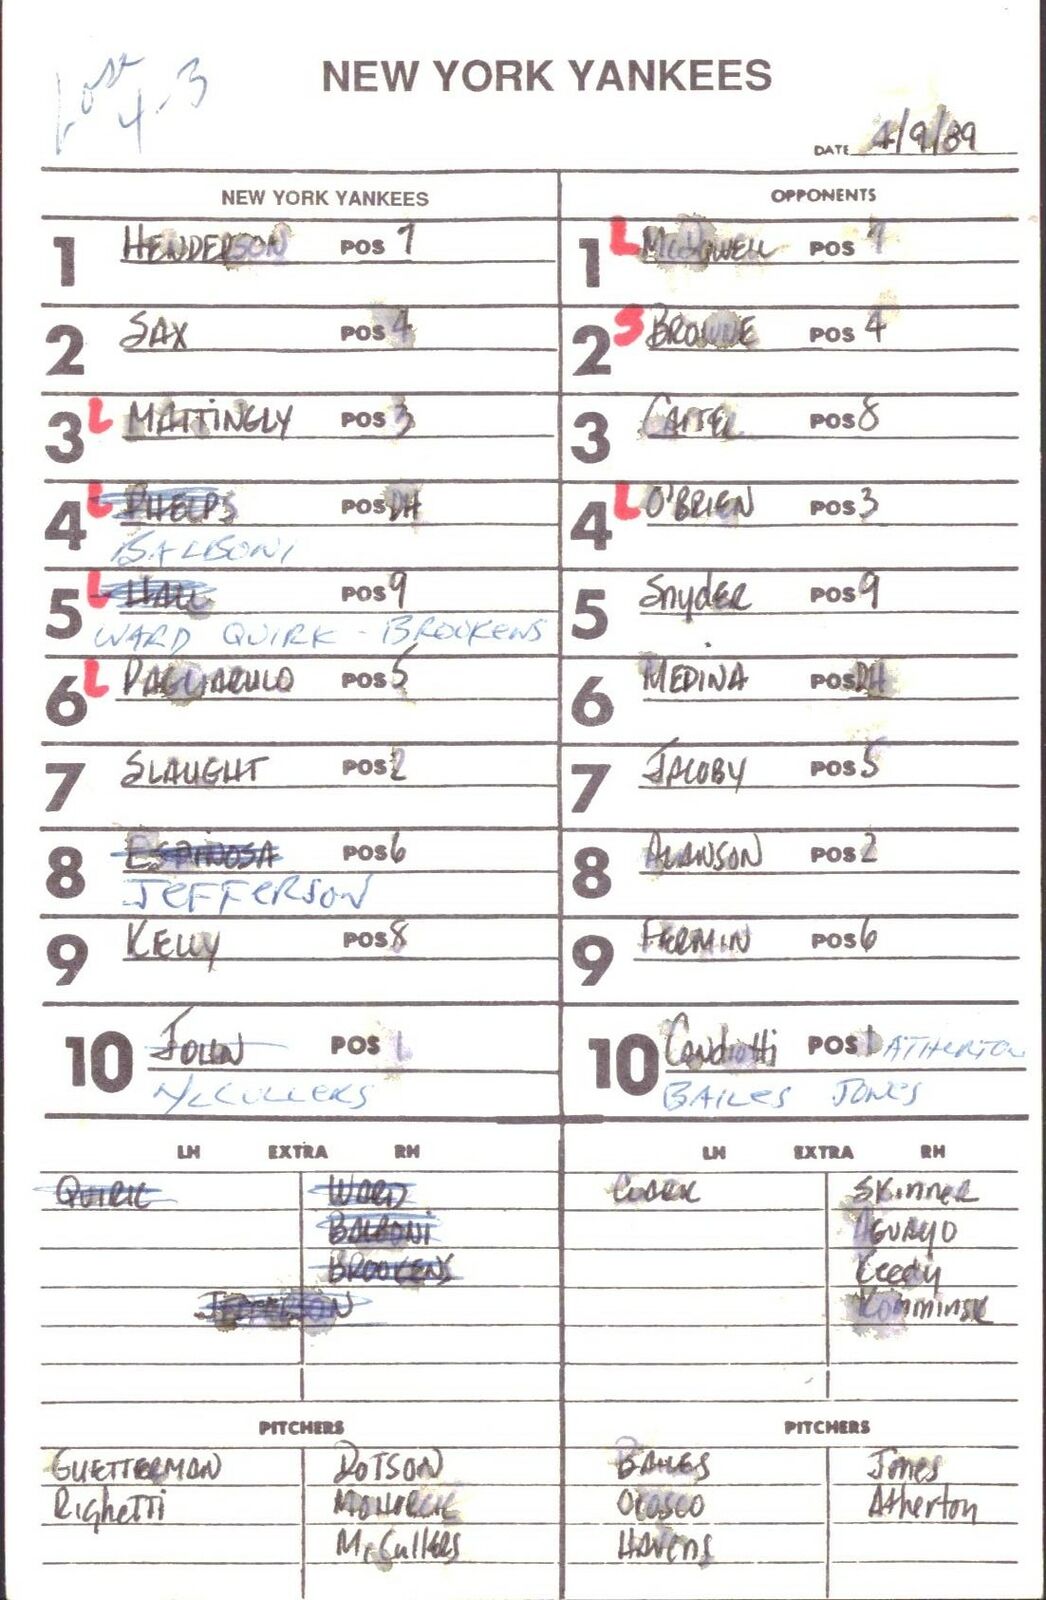 Lost
4-3
NEW YORK YANKEES
DATE 4/9/89
NEW YORK YANKEES
1 HENDERSON POS 7
2 SAX POS 4
3 L MATTINGLY POS 3
4 L PHELPS POS DH
BALBONI
5 L HALL POS 9
WARD QUIRK - BROOKENS
6 L PAGLIARULO POS 5
7 SLAUGHT POS 2
8 ESPINOSA POS 6
JEFFERSON
9 KELLY POS 8
10 JOHN POS 1
McCULLERS
LH EXTRA RH
QUIRK WARD
BALBONI
BROOKENS
JEFFERSON
PITCHERS
GUETTERMAN DOTSON
Righetti MOHORCIC
McCullers
OPPONENTS
1 L McDOWELL POS 7
2 S BROWNE POS 4
3 CARTER POS 8
4 L O'BRIEN POS 3
5 Snyder POS 9
6 MEDINA POS DH
7 JACOBY POS 5
8 ALLANSON POS 2
9 FERMIN POS 6
10 Candiotti POS 1 ATHERTON
BAILES JONES
LH EXTRA RH
CLARK SKINNER
AGUAYO
Komminsk
PITCHERS
BAILES Jones
OROSCO Atherton
HAVENS